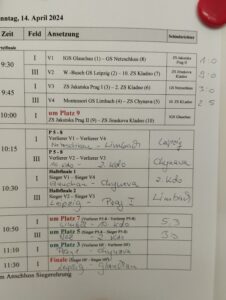 nntag, 14. April 2024
Zeit Feld Ansetzung Schiedsrichter
9:30 I V1 IGS Glauchau (1) – GS Netzschkau (8) ZS Jakutska Prag II 1:0
III V2 W.-Busch GS Leipzig (2) – 10. ZS Kladno (7)
9:45 I V3 ZS Jakutska Prag I (3) – 2. ZS Kladno (6) GS Netzschkau 3:0
III V4 Montessori GS Limbach (4) – ZS Chynava (5) 10. ZS Kladno 2:5
10:00 I um Platz 9
ZS Jakutska Prag II (9) – ZS Jirankova Kladno (10) IGS Glauchau
10:15 I P 5 - 8
Verlierer V1 – Verlierer V4
Netzschkau – Limbach Leipzig
III P 5 - 8
Verlierer V2 – Verlierer V3
Chynava
10:30 I Halbfinale 1
Sieger V1 – Sieger V4
Glauchau – Chynava 2. Kdo
III Halbfinale 2
Sieger V2 – Sieger V3
Leipzig – Prag I Limbach
10:50 I um Platz 7 (Verlierer P 5-8 - Verlierer P5-8)
10. Kdo 5:3
III um Platz 5 (Sieger P5-8 – Sieger P5-8)
2. Kdo
11:10 I um Platz 3 (Verlierer HF – Verlierer HF)
Chynava
11:30 I Finale (Sieger HF – Sieger HF)
Leipzig – Glauchau
m Anschluss Siegerehrung